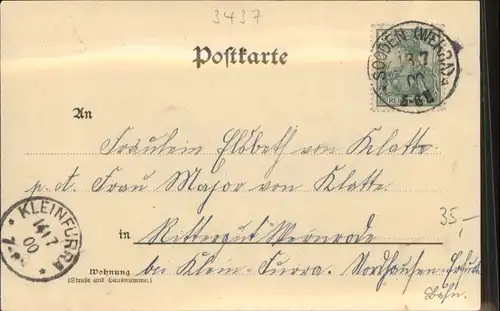 3437
Postkarte
SOODEN (WERRA)
3 7
00
An
Fräulein Elsbeth von Klatte.
p. A. Frau Major von Klatte
35,-
in Rittergut Wernrode
KLEINFURRA
14 17
00
7-
Wohnung
(Straße und Hausnummer.)
bei Klein-Furra. Nordhausen-Erfurt
Bahn.